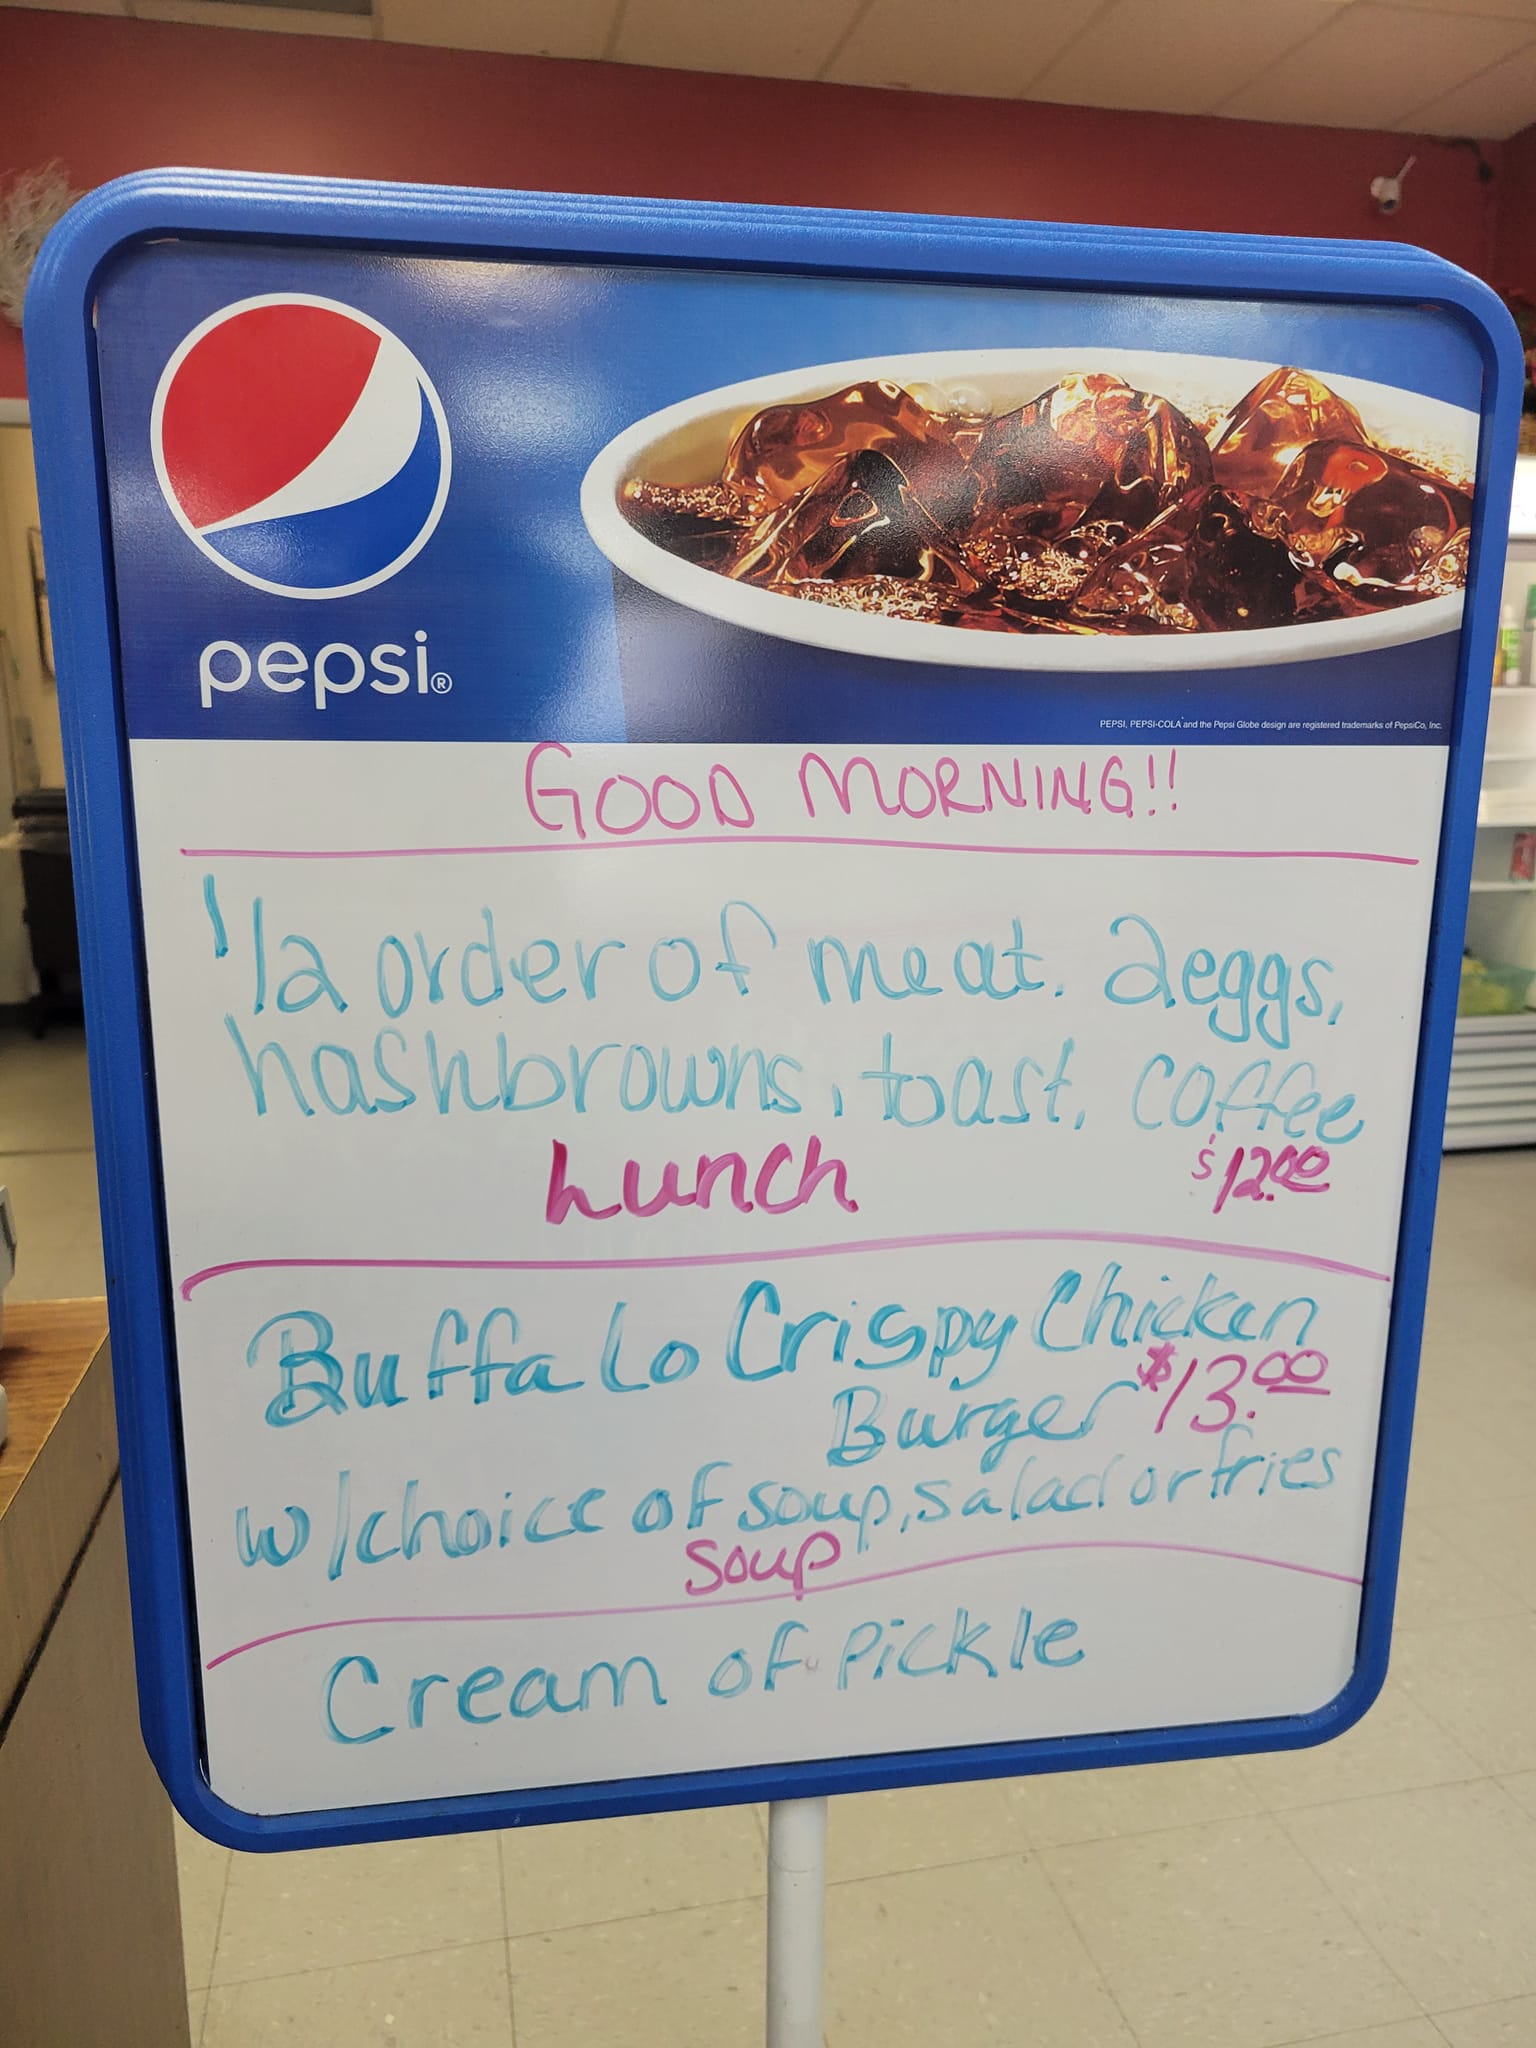 pepsi®
PEPSI, PEPSI-COLA and the Pepsi Globe design are registered trademarks of PepsiCo, Inc.
GOOD MORNING!!
1/2 order of meat. 2eggs,
hashbrowns, toast, coffee
$12.00
Lunch
Buffalo Crispy Chicken
Burger $13.00
w/choice of soup, salad or fries
Soup
Cream of Pickle